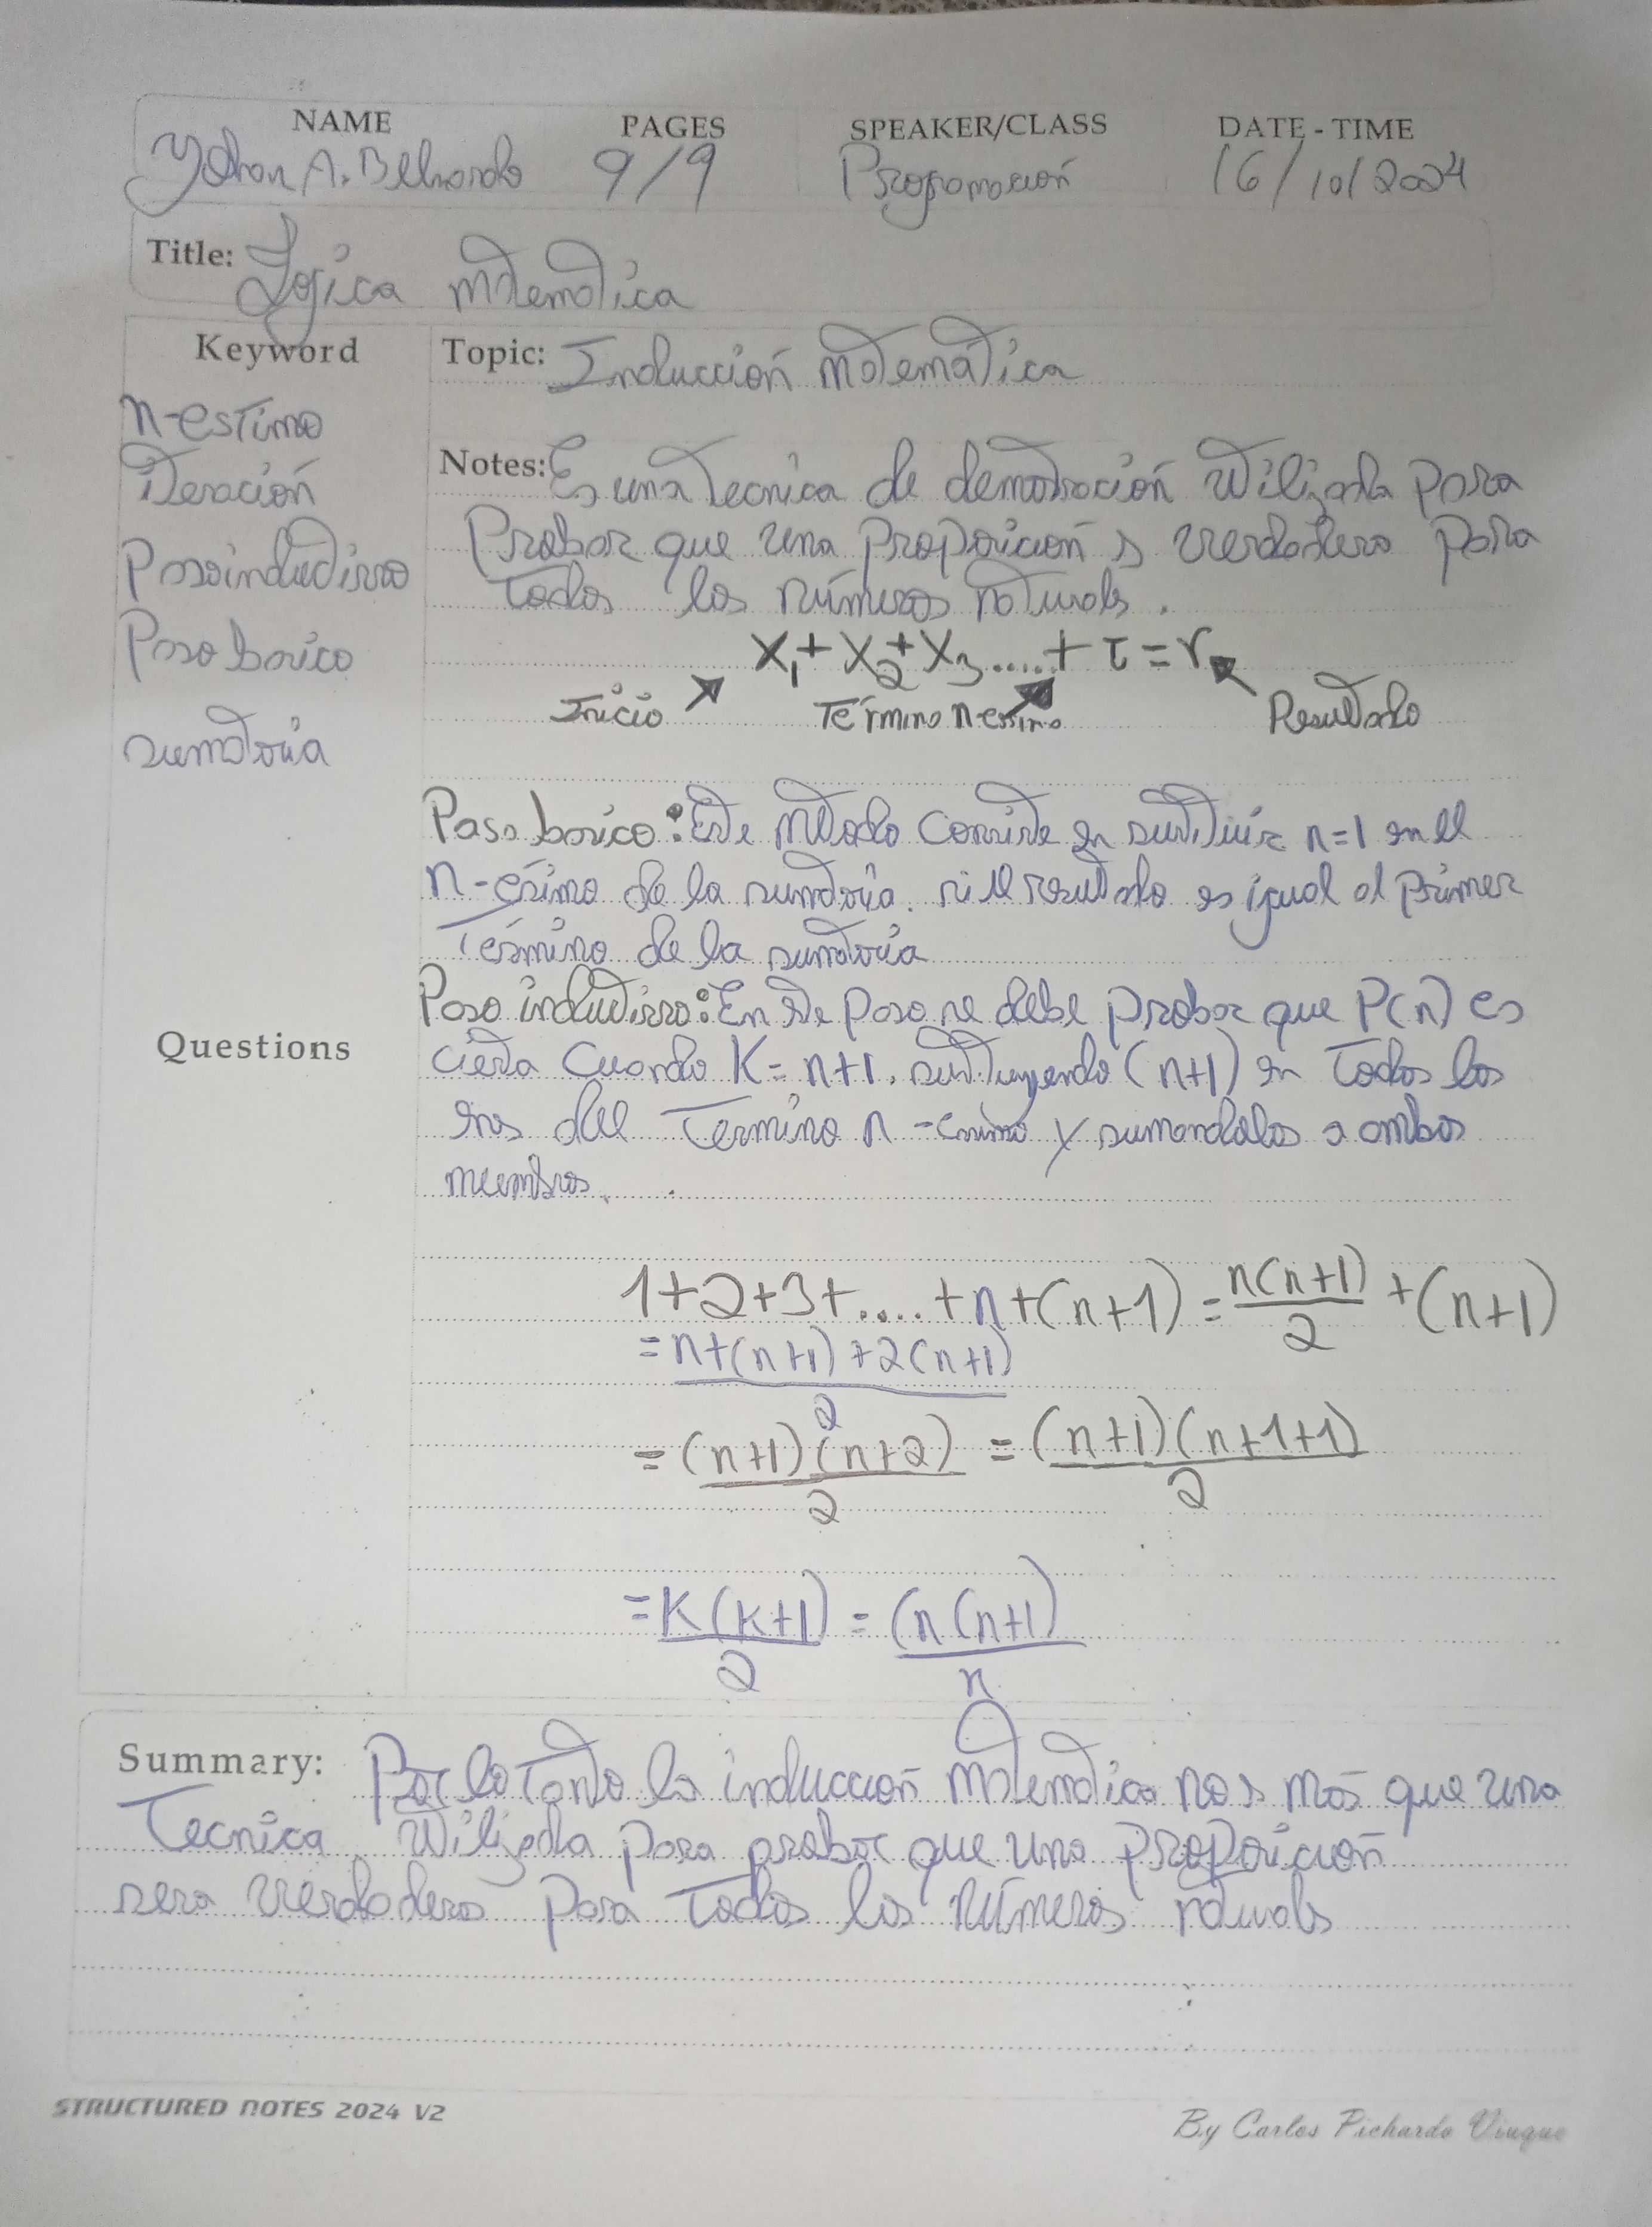 NAME PAGES SPEAKER/CLASS DATE - TIME
Yohan A. Belliardo 9/9 Programación 16/10/2024
Title: Logica matematica
Keyword
n-estimo
iteración
Paso inductivo
Paso basico
sumatoria
Questions
Topic: Inducción matemática
Notes: Es una tecnica de demostración utilizada para
Probar que una proposicion es verdadera para
todos los números naturales.
x₁ + x₂ + x₃ ..... + τ = r
Inicio Término n-esimo Resultado
Paso basico: Este metodo consiste en sustituir n=1 en el
n-esimo de la sumatoria. si el resultado es igual al primer
Término de la sumatoria
Paso inductivo: En este paso se debe probar que P(n) es
cierta cuando K = n+1. sustituyendo (n+1) en todos los
enes del Termino n-esimo y sumandolos a ambos
miembros.
1+2+3+....+n+(n+1) = n(n+1)/2 + (n+1)
= n+(n+1)+2(n+1)/2
= (n+1)(n+2)/2 = (n+1)(n+1+1)/2
= K(K+1)/2 = (n(n+1)/n
Summary: Por lo tanto la inducción matematica no es mas que una
Tecnica utilizada para probar que una proposición
sera verdadera para todos los números naturales
STRUCTURED NOTES 2024 V2
By Carlos Pichardo Viuque